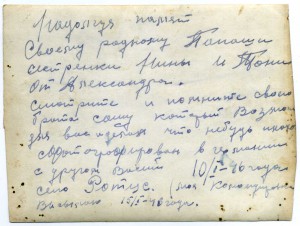 На долгую памят
Своему родному Папаши
сестренки Нины и Тони
От Александра.
смотрите и помните своего
брата сашу который Возмож
для вас сделает что нибудь
сфотографирован в германии
с другом Васей 10/I-46 года
село Ротус. моя
Высылаю 15/I-46 года.